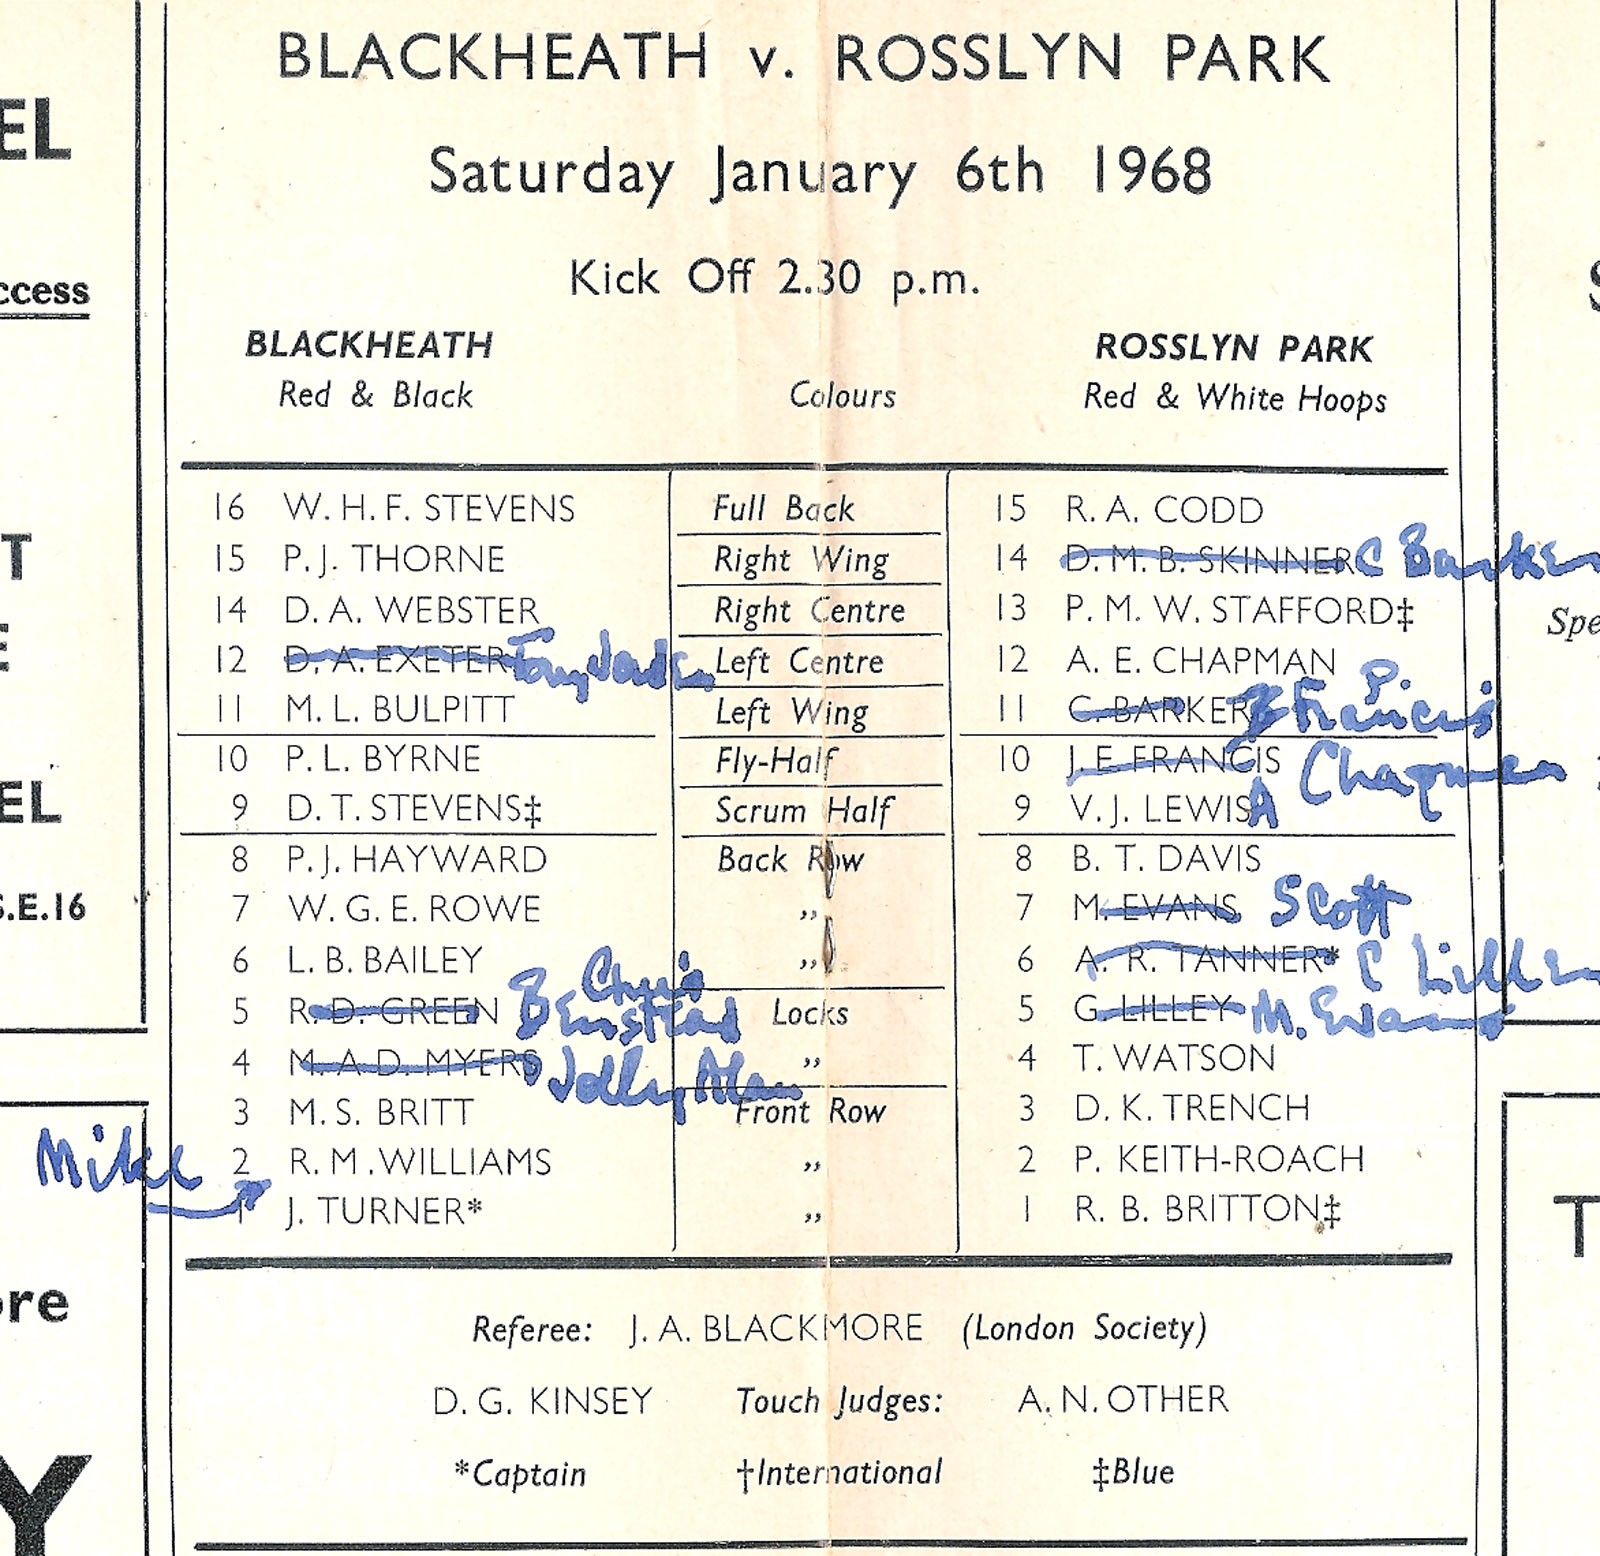 BLACKHEATH v. ROSSLYN PARK
EL
Saturday January 6th 1968
Kick Off 2.30 p.m.
ccess
BLACKHEATH ROSSLYN PARK
Red & Black Colours Red & White Hoops
16 W. H. F. STEVENS Full Back 15 R. A. CODD
T
15 P. J. THORNE Right Wing 14 D. M. B. SKINNER C Barker
14 D. A. WEBSTER Right Centre 13 P. M. W. STAFFORD‡
Spe
E
12 D. A. EXETER Tony Jorden Left Centre 12 A. E. CHAPMAN
11 M. L. BULPITT Left Wing 11 C. BARKER F P. Francis
10 P. L. BYRNE Fly-Half 10 J. E. FRANCIS A Chapman
EL
9 D. T. STEVENS‡ Scrum Half 9 V. J. LEWIS
8 P. J. HAYWARD Back Row 8 B. T. DAVIS
S.E.16
7 W. G. E. ROWE ,, 7 M. EVANS Scott
6 L. B. BAILEY ,, 6 A. R. TANNER* C Lilley
5 R. D. GREEN Chris Benstead Locks 5 G. LILLEY M. Evans
4 M. A. D. MYERS Jolly Alan ,, 4 T. WATSON
3 M. S. BRITT Front Row 3 D. K. TRENCH
Mike 2 R. M. WILLIAMS ,, 2 P. KEITH-ROACH
1 J. TURNER* ,, 1 R. B. BRITTON‡
T
ore
Referee: J. A. BLACKMORE (London Society)
D. G. KINSEY Touch Judges: A. N. OTHER
*Captain †International ‡Blue
Y